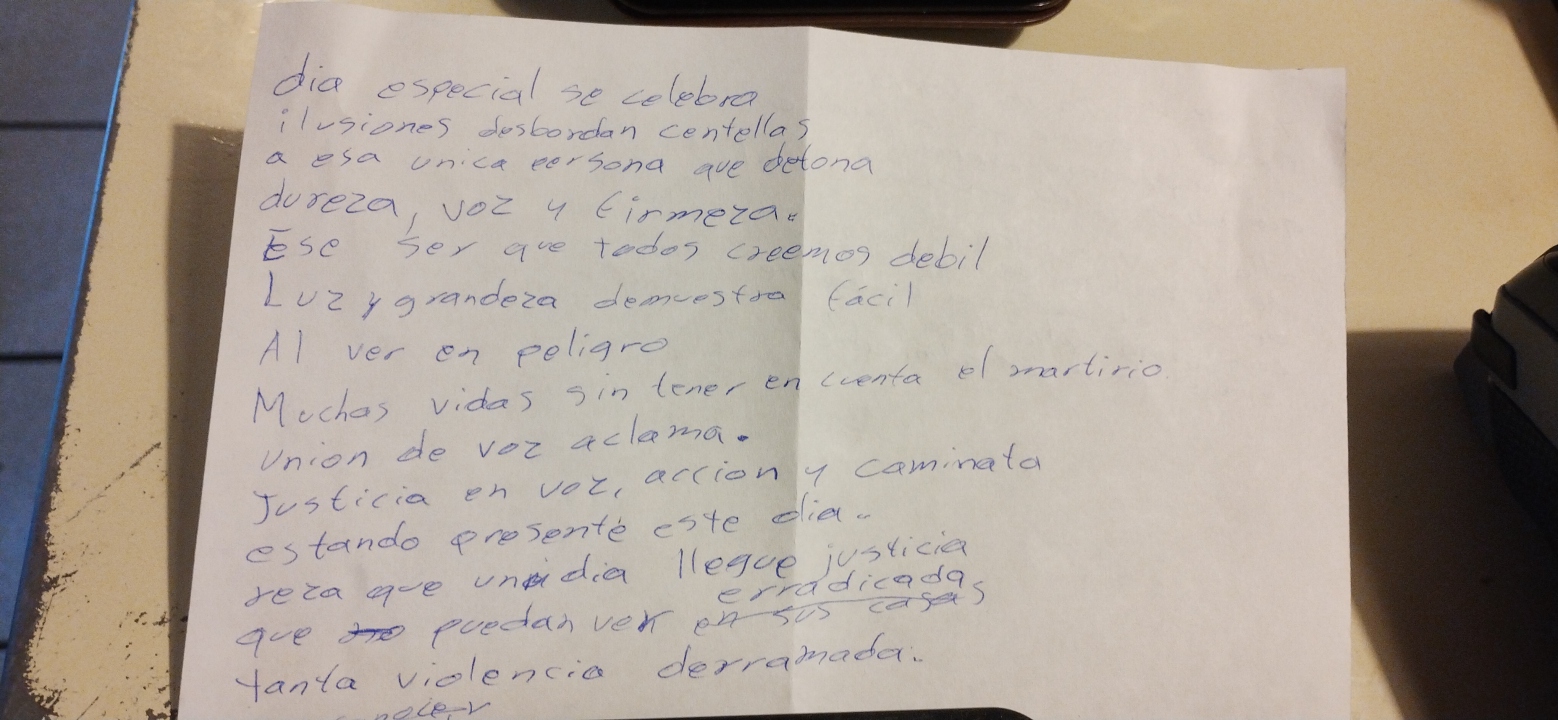 dia especial se celebra
ilusiones desbordan centellas
a esa unica persona que detona
dureza, voz y firmeza.
Ese ser que todos creemos debil
Luz y grandeza demuestra fácil
Al ver en peligro
Muchas vidas sin tener en cuenta el martirio.
Union de voz aclama.
Justicia en voz, accion y caminata
estando presente este dia.
reza que un dia llegue justicia
erradicada
que no puedan ver en sus casas
tanta violencia derramada.